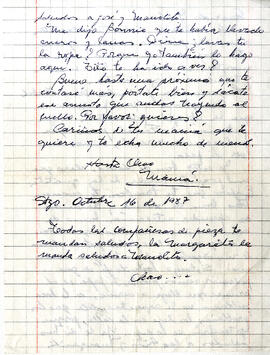 saludos a José y Manolito.
Me dijo que te había llevado
y ¿lavas tu
la ropa? Porque yo también lo hago
aquí. Tito te ha ido a ver?
Bueno hasta una próxima que te
contaré más, portate bien y
en cuanto que andas
Por favor quieres?
Cariños de tu mamá que te
quiere y te echa mucho de menos.
Hasta Chao
Mamá.
Stgo. Octubre 16 de 1987
Todas las compañeras de pieza te
mandan saludos, la Margarita le
manda saludos a Manolito.
Chao...